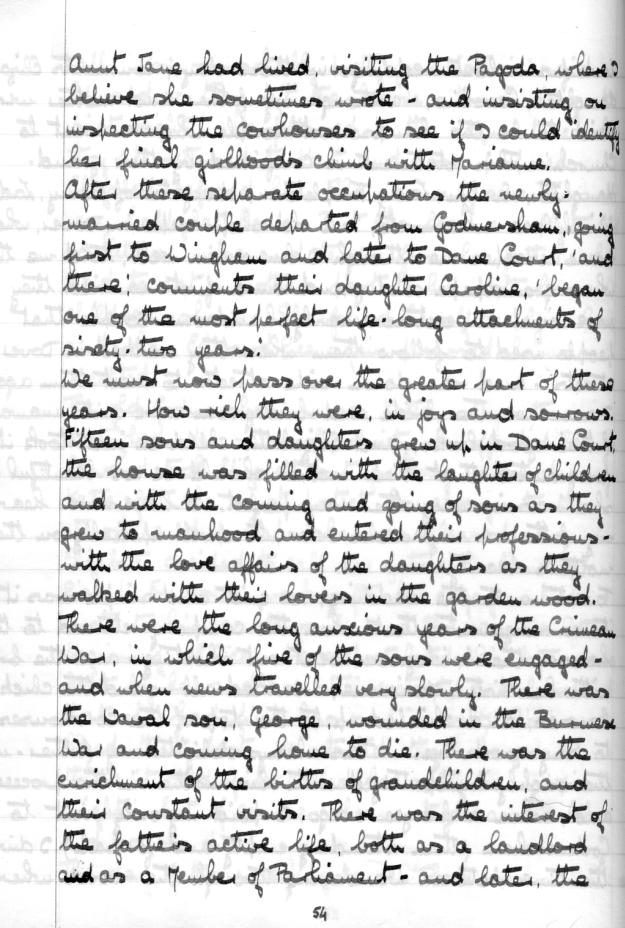 Aunt Jane had lived, visiting the Pagoda, where I
believe she sometimes wrote - and insisting on
inspecting the cowhouses to see if I could identify
her final girlhood's climb with Marianne.
After these separate occupations the newly-
married couple departed from Godmersham, going
first to Wingham and later to Dane Court, 'and
there', comments their daughter Caroline, 'began
one of the most perfect life-long attachments of
sixty-two years.'
We must now pass over the greater part of these
years. How rich they were, in joys and sorrows.
Fifteen sons and daughters grew up in Dane Court,
the house was filled with the laughter of children
and with the coming and going of sons as they
grew to manhood and entered their professions -
with the love affairs of the daughters as they
walked with their lovers in the garden wood.
There were the long anxious years of the Crimean
War, in which five of the sons were engaged -
and when news travelled very slowly. There was
the Naval son, George, wounded in the Burmese
War and coming home to die. There was the
enrichment of the births of grandchildren, and
their constant visits. There was the interest of
the father's active life, both as a landlord
and as a Member of Parliament - and later, the
54